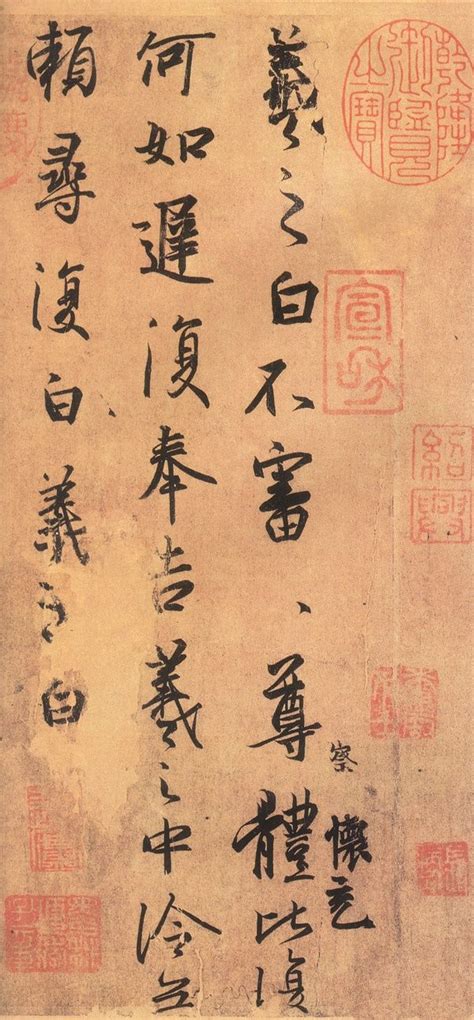 乾隆御覽之寶
宣和
紹興
察 懷充
羲之白不審、尊體比復
何如遲復奉告羲之中冷無
賴尋復白、羲之白